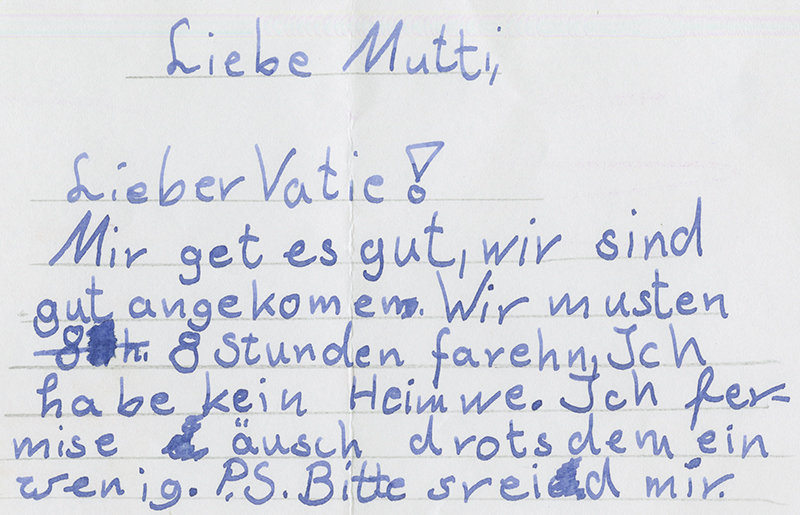 Liebe Mutti,
Lieber Vatie!
Mir get es gut, wir sind
gut angekomen. Wir musten
8 Stunden farehn, Ich
habe kein Heimwe. Ich fer-
mise äusch drotsdem ein
wenig. P.S. Bitte sreid mir.